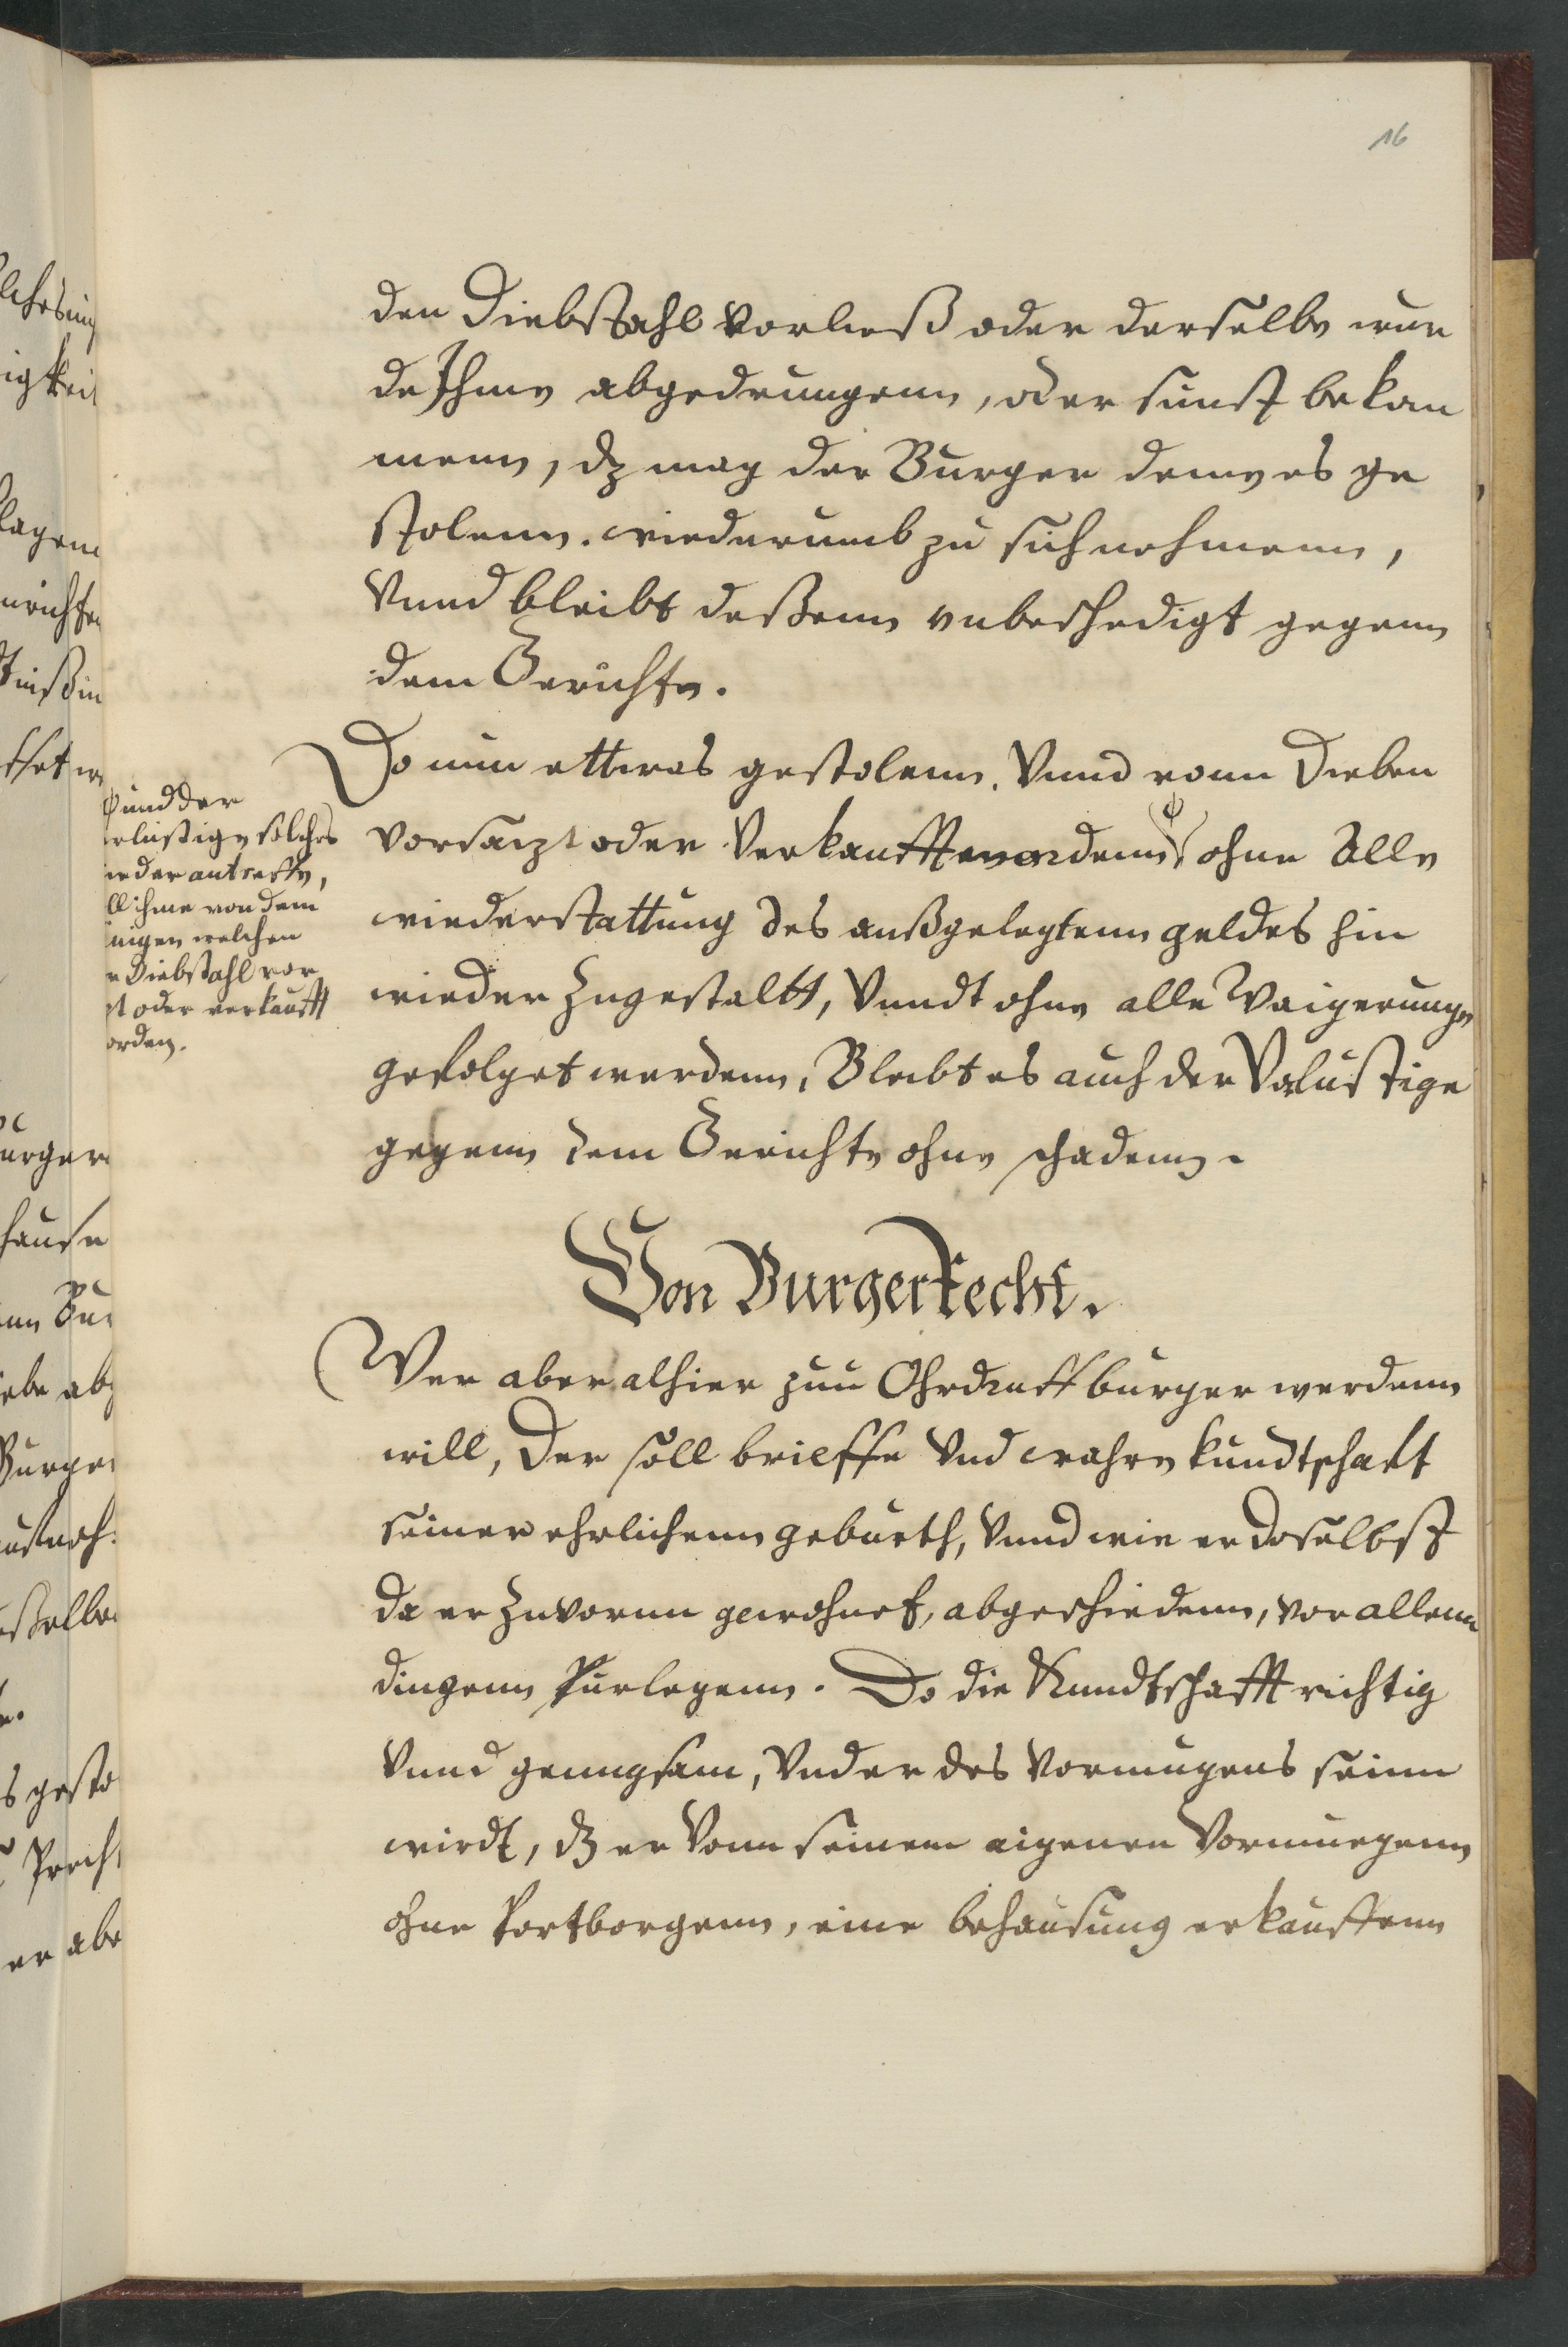 16
den Diebstahl vorließ oder derselbe wur
de Ihme abgedrungenn, oder sunst bekom
menn, dz mag der Burger deme es ge
stolenn. wiederumb zu sich nehmenn,
Vnnd bleibt deßenn vnbeschedigt gegenn
dem Gerichte.
Do nun ettwas gestolenn. Vnnd vonn Dieben
vorsatzt oder verkaufft wordenn, ohne Alle
wiederstattung des außgelegtenn geldes hin
wieder zugestaltt, Vnndt ohne alle Waigerunge
gefolget werdenn, Bleibt es auch der Verlustige
gegenn dem Gerichte ohne schadenn.
und der
rlustige solches
ieder antreffe,
ll ihme von dem
nigen welchen
r Diebstahl vor
zt oder verkaufft
orden.
Von Burger Recht.
Wer aber alhier zuu Ohrdruff burger werdenn
will, Der soll brieffe Vnd wahre kundtschafft
seiner ehrlichenn geburth, Vnnd wie er doselbst
da er zuvornn gewohnet, abgeschiedenn, vor allenn
dingenn furlegenn. Do die Kundtschafft richtig
Vnnd genungsam, Vnd er des Vormugens seinn
wirdt, dz er Vonn seinem eigenen Vormuegenn
ohne fortborgenn, eine behausung erkauffenn